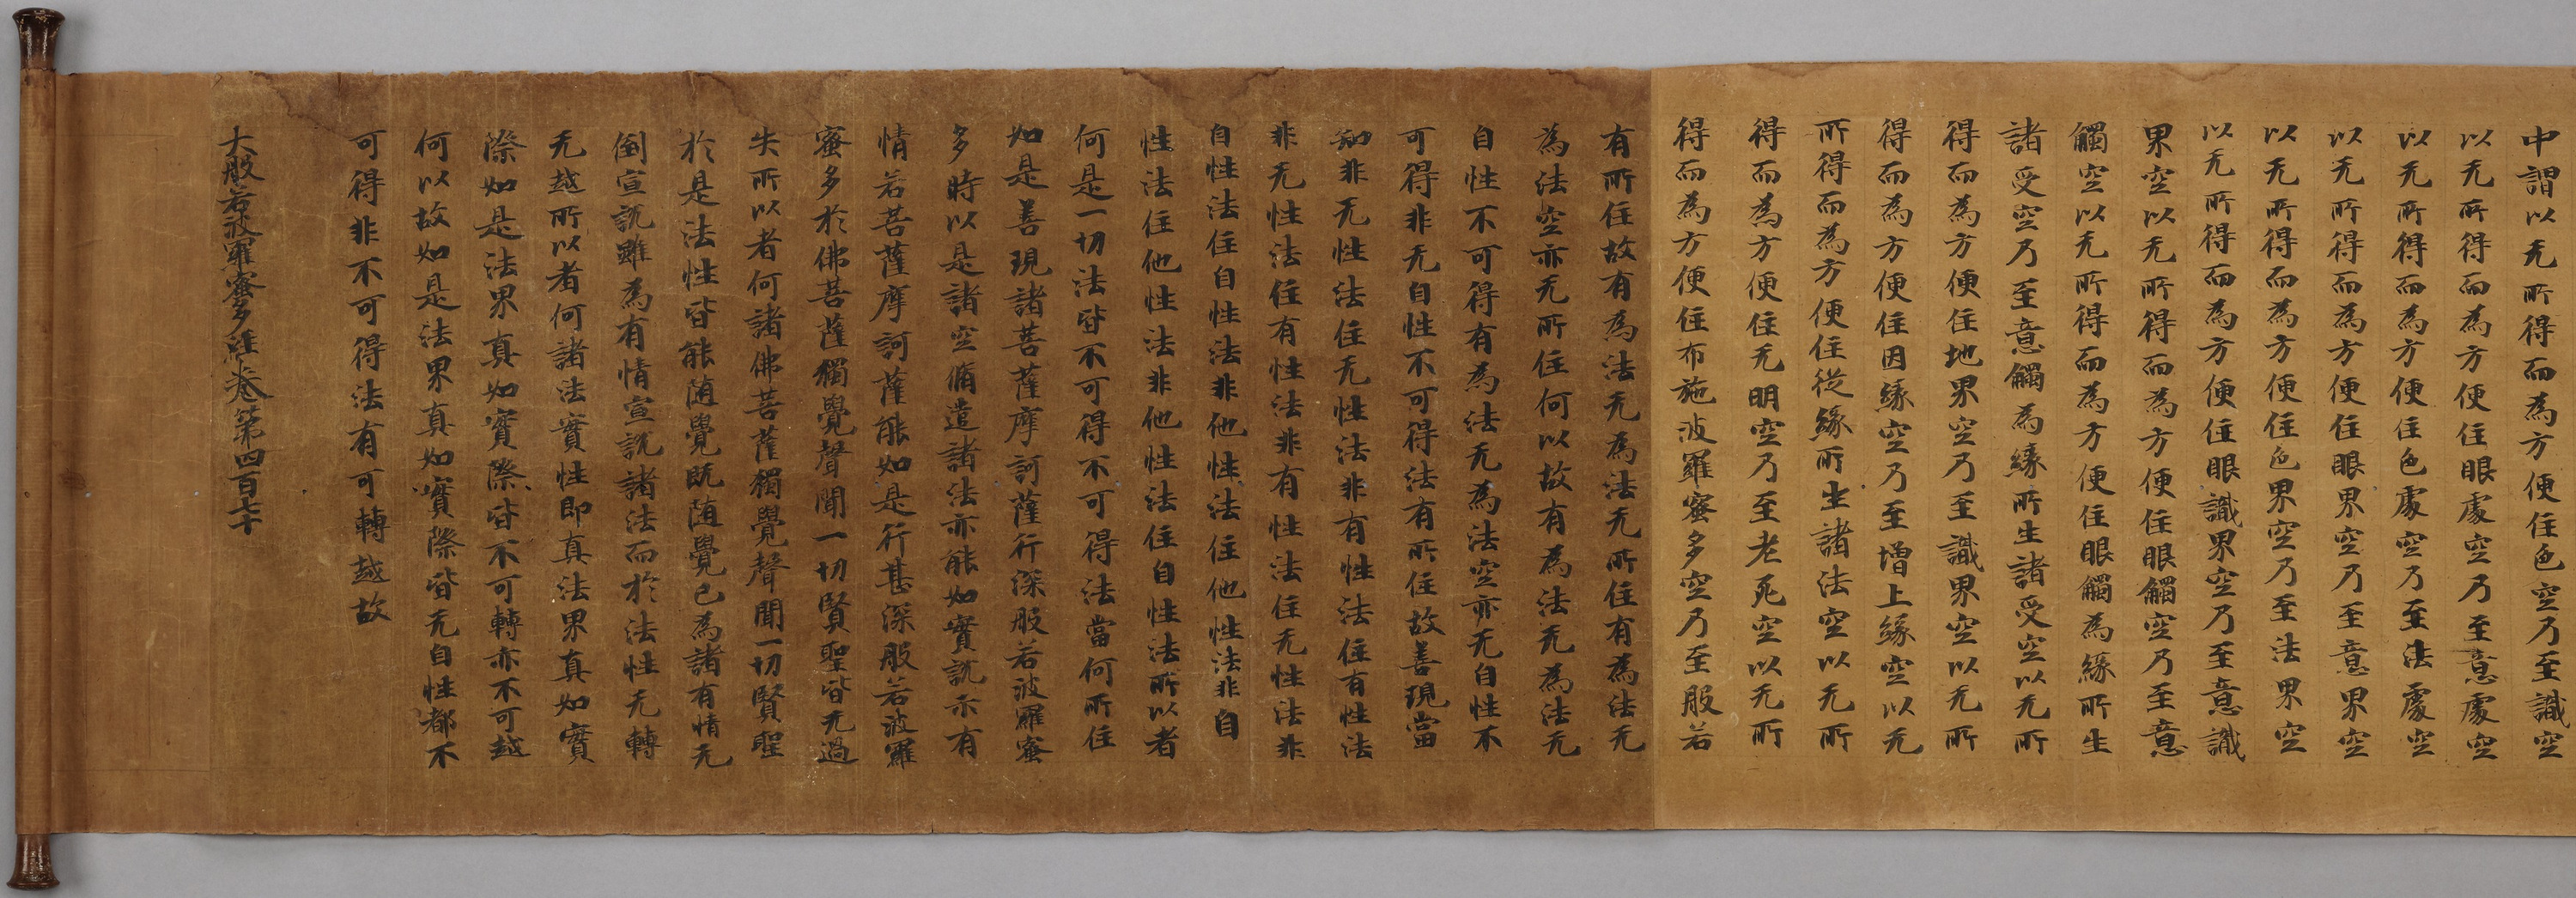 中謂以无所得而為方便住色空乃至識空
以无所得而為方便住眼處空乃至意處空
以无所得而為方便住色處空乃至法處空
以无所得而為方便住眼界空乃至意界空
以无所得而為方便住色界空乃至法界空
以无所得而為方便住眼識界空乃至意識
界空以无所得而為方便住眼觸空乃至意
觸空以无所得而為方便住眼觸為緣所生
諸受空乃至意觸為緣所生諸受空以无所
得而為方便住地界空乃至識界空以无所
得而為方便住因緣空乃至增上緣空以无
所得而為方便住從緣所生諸法空以无所
得而為方便住无明空乃至老死空以无所
得而為方便住布施波羅蜜多空乃至般若
有所住故有為法无為法无所住有為法无
為法空亦无所住何以故有為法无為法无
自性不可得有為法无為法空亦无自性不
可得非无自性不可得法有所住故善現當
知非无性法住无性法非有性法住有性法
非无性法住有性法非有性法住无性法非
自性法住自性法非他性法住他性法非自
性法住他性法非他性法住自性法所以者
何是一切法皆不可得不可得法當何所住
如是善現諸菩薩摩訶薩行深般若波羅蜜
多時以是諸空脩遣諸法亦能如實說示有
情若菩薩摩訶薩能如是行甚深般若波羅
蜜多於佛菩薩獨覺聲聞一切賢聖皆无過
失所以者何諸佛菩薩獨覺聲聞一切賢聖
於是法性皆能随覺既随覺已為諸有情无
倒宣說雖為有情宣說諸法而於法性无轉
无越所以者何諸法實性即真法界真如實
際如是法界真如實際皆不可轉亦不可越
何以故如是法界真如實際皆无自性都不
可得非不可得法有可轉越故
大般若波羅蜜多經卷第四百七十